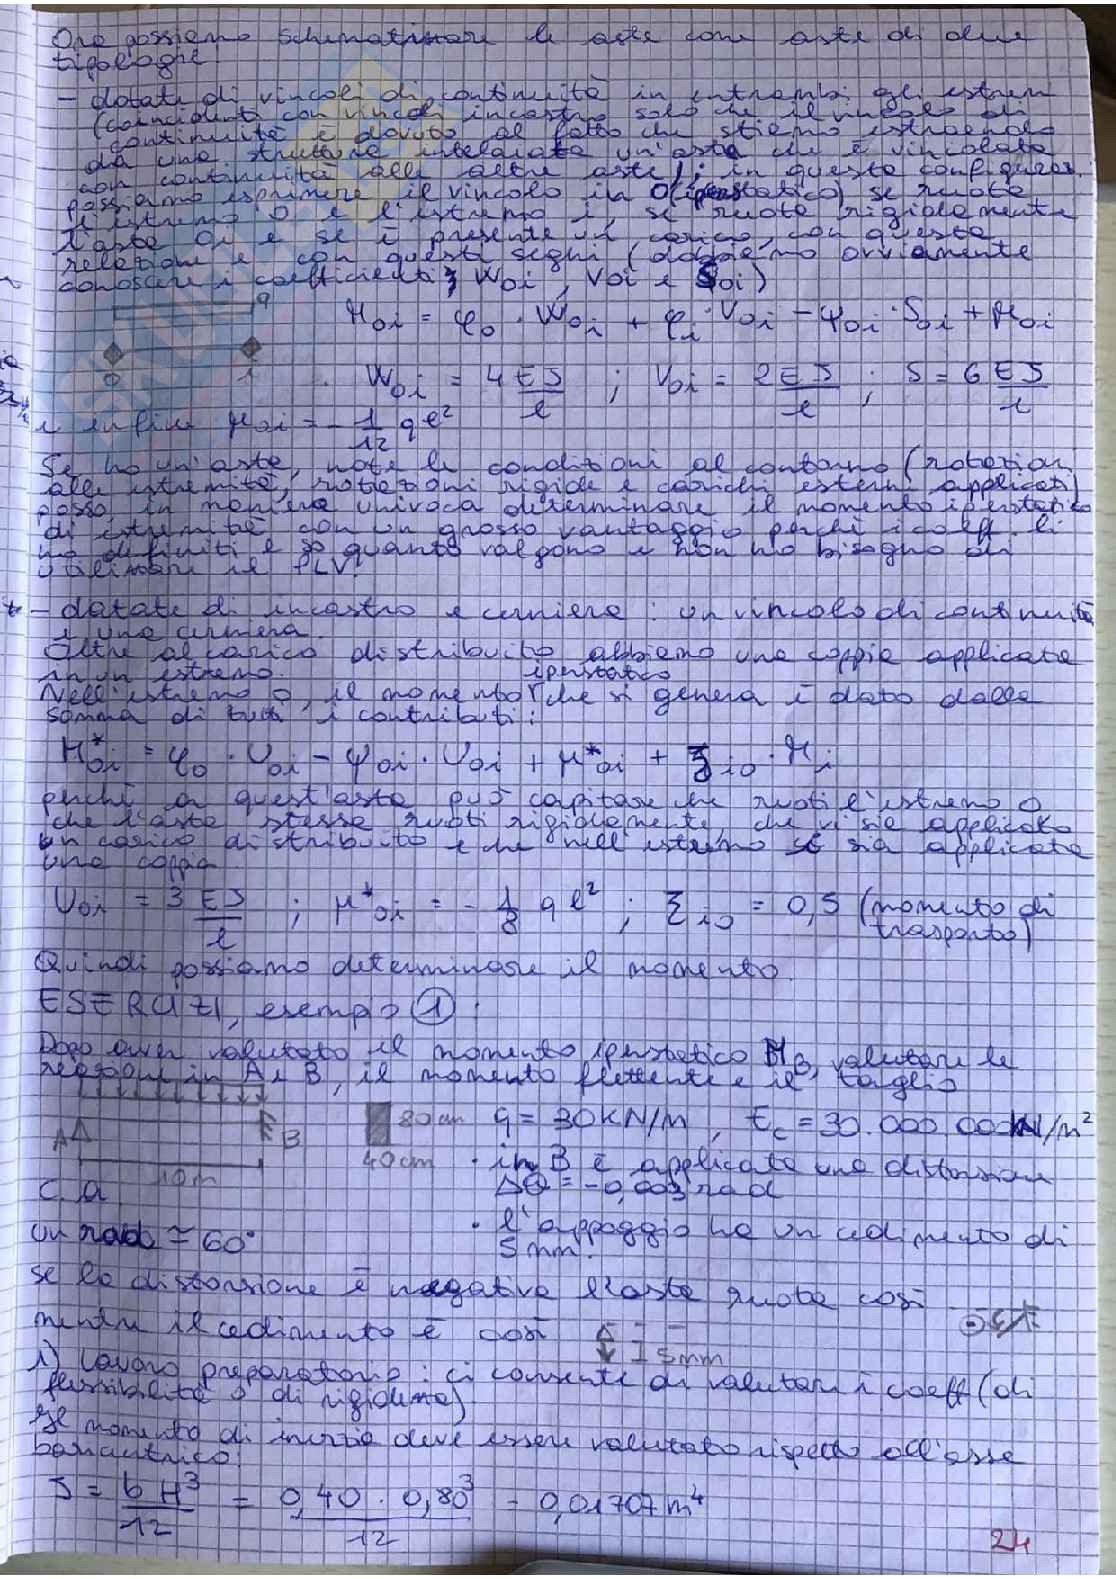 Ora possiamo schematizzare le aste come aste di due
tipologie:
- dotate di vincoli di continuità in entrambi gli estremi
(coincidenti con vincoli incastro solo che il vincolo di
continuità è dovuto al fatto che stiamo estraendo
da una struttura intelaiata un'asta che è vincolata
con continuità alle altre aste); in questa configuraz.
possiamo esprimere il vincolo in O (iperstatico) se ruota
l'estremo O e l'estremo i, se ruota rigidamente
l'asta Oi e se è presente un carico, con questa
relazione e con questi segni (dobbiamo ovviamente
conoscere i coefficienti W_{oi}, V_{oi} e S_{oi})
q
M_{oi} = φ_o · W_{oi} + φ_i · V_{oi} - ψ_{oi} · S_{oi} + μ_{oi}
O i
W_{oi} = 4 EJ/l ; V_{oi} = 2 EJ/l ; S = 6 EJ/l
e infine μ_{oi} = - 1/12 q l²
Se ho un'asta, note le condizioni al contorno (rotazioni
alle estremità, rotazioni rigide e carichi esterni applicati)
posso in maniera univoca determinare il momento iperstatico
di estremità con un grosso vantaggio perché i coeff. li
ho definiti e so quanto valgono e non ho bisogno di
utilizzare il PLV.
* - dotate di incastro e cerniera: un vincolo di continuità
e una cerniera.
Oltre al carico distribuito abbiamo una coppia applicata
in un estremo.
iperstatico
Nell'estremo O, il momento che si genera è dato dalla
somma di tutti i contributi:
M*_{oi} = φ_o · U_{oi} - ψ_{oi} · U_{oi} + μ*_{oi} + ξ_{io} · M_i
perché in quest'asta può capitare che ruoti l'estremo O
che l'asta stessa ruoti rigidamente, che vi sia applicato
un carico distribuito e che nell'estremo sia applicata
una coppia
U_{oi} = 3 EJ/l ; μ*_{oi} = - 1/8 q l² ; ξ_{io} = 0,5 (momento di
trasporto)
Quindi possiamo determinare il momento.
ESERCIZI, esempio ①:
Dopo aver valutato il momento iperstatico M_B, valutare le
reazioni in A e B, il momento flettente e il taglio
A B 80cm q = 30KN/m, E_c = 30.000.000KN/m²
10m 40cm · in B è applicata una distorsione
c.a ΔΘ = -0,003 rad
un rad ≃ 60° · l'appoggio ha un cedimento di
5mm.
se la distorsione è negativa l'asta ruota così
mentre il cedimento è così 5mm
1) Lavoro preparatorio: ci consente di valutare i coeff (di
flessibilità o di rigidezza)
Il momento di inerzia deve essere valutato rispetto all'asse
baricentrico:
J = b H³/12 = 0,40 · 0,80³/12 = 0,01707 m⁴
24